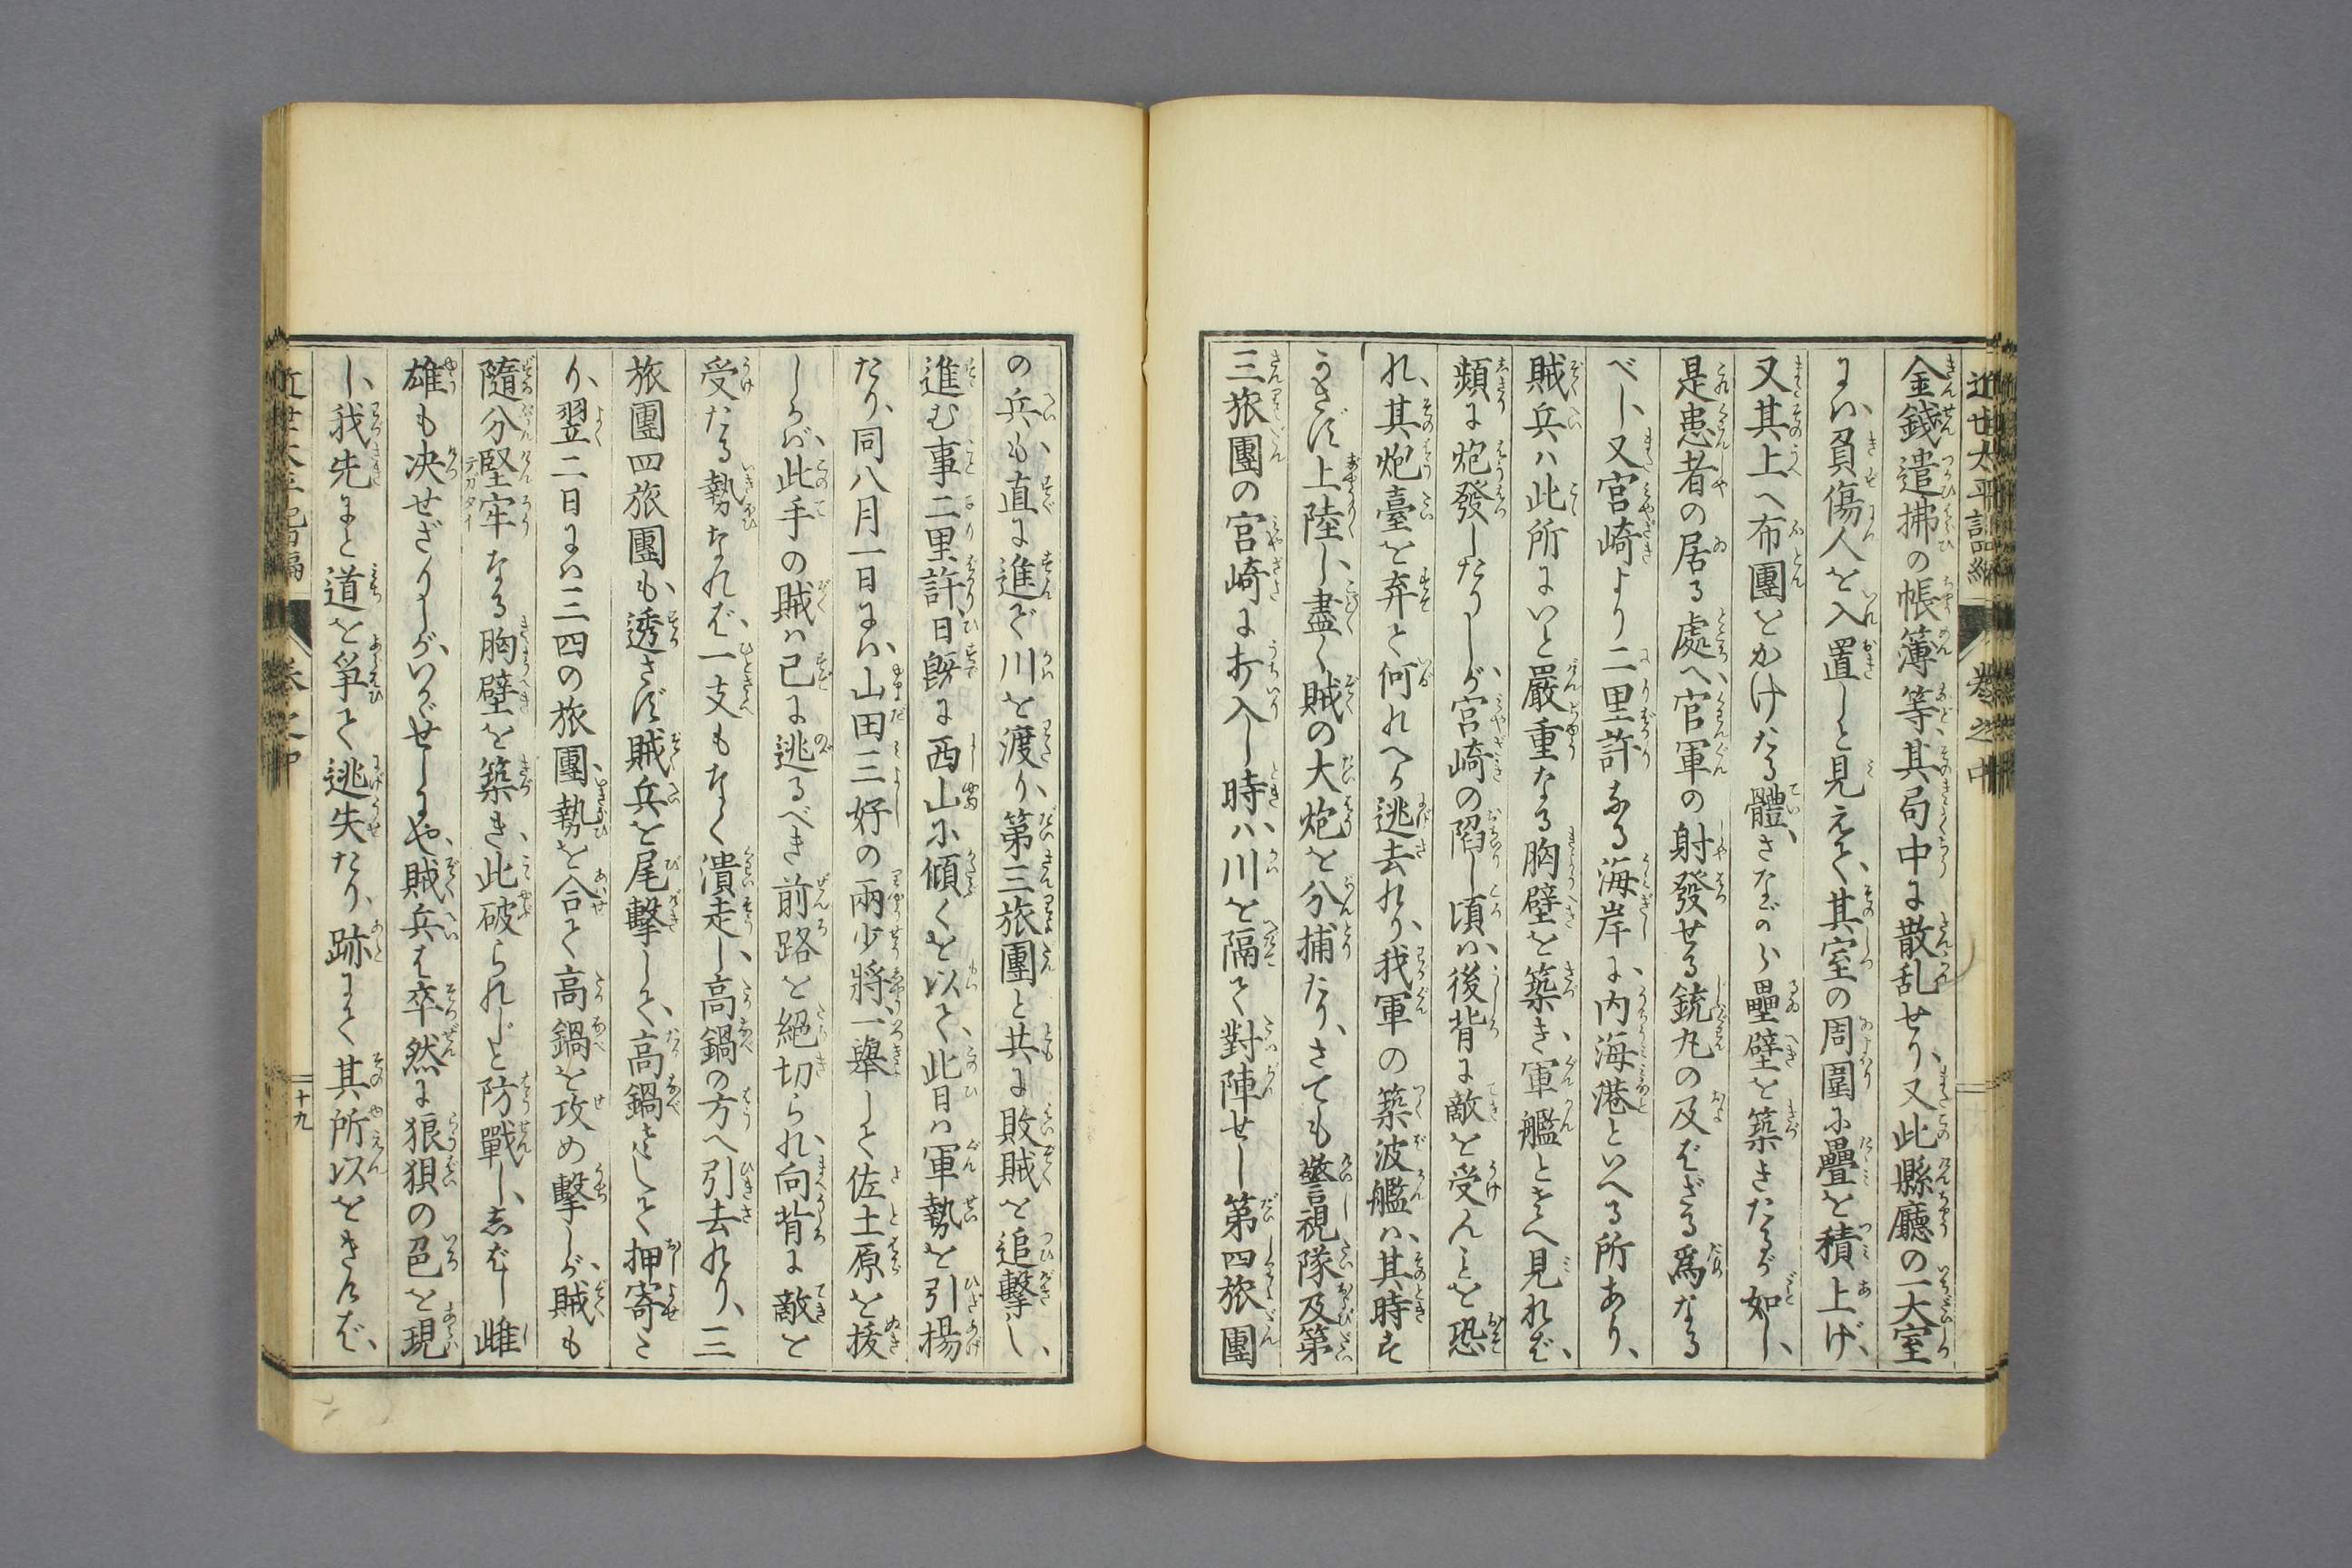 金錢遣拂の帳簿等、其局中に散乱せり、又此縣廳の一大室
には、負傷人を入置しと見えて、其室の周圍に疊を積上げ、
又其上へ布團をかけたる體、さながら壘壁を築きたるが如し、
是患者の居る處へ、官軍の射發せる銃丸の及ばざる爲なる
べし、又宮崎より二里許なる海岸に、内海港といへる所あり、
賊兵ハ此所にいと嚴重なる胸壁を築き、軍艦とさへ見れば、
頻に炮發したりしが、宮崎の陷し頃ハ、後背に敵を受んことを恐
れ、其炮臺を弃て何れへか逃去れり、我軍の築波艦ハ、其時す
かさず上陸し、盡く賊の大炮を分捕たり、さても警視隊及第
三旅團の宮崎に打入し時ハ、川を隔て對陣せし第四旅團
の兵も、直に進で川を渡り、第三旅團と共に敗賊を追擊し、
進む事二里許、日既に西山に傾くを以て、此日ハ軍勢を引揚
たり、同八月一日にハ、山田三好の兩少將、一擧して佐土原を拔
しかバ、此手の賊ハ已に逃るべき前路を絕切られ、向背に敵を
受たる勢なれバ、一支もなく潰走し、高鍋の方へ引去れり、三
旅團四旅團も、透さず賊兵を尾擊して、高鍋さして押寄た
り、翌二日にハ三四の旅團、勢を合て高鍋を攻め擊しが、賊も
隨分堅牢なる胸壁を築き、此破られじと防戰し、志ばし雌
雄も決せざりしが、いかゞせしにや、賊兵は卒然に狼狽の色を現
し、我先にと道を爭て逃失たり、跡にて其所以をきけば、
近世太平記續編 卷之中
十九